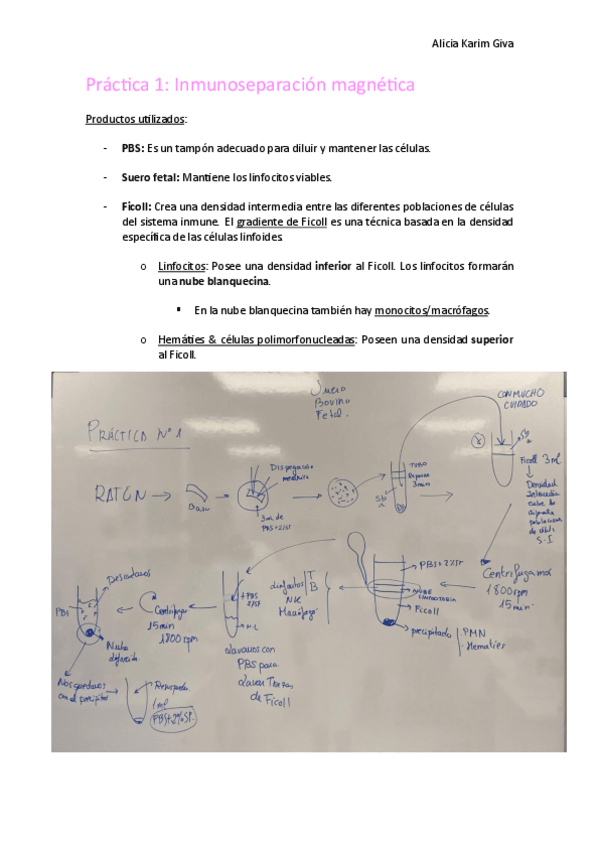 Alicia Karim Giva
Práctica 1: Inmunoseparación magnética
Productos utilizados:
- PBS: Es un tampón adecuado para diluir y mantener las células.
- Suero fetal: Mantiene los linfocitos viables.
- Ficoll: Crea una densidad intermedia entre las diferentes poblaciones de células
del sistema inmune. El gradiente de Ficoll es una técnica basada en la densidad
específica de las células linfoides.
o Linfocitos: Posee una densidad inferior al Ficoll. Los linfocitos formarán
una nube blanquecina.
▪ En la nube blanquecina también hay monocitos/macrófagos.
o Hemáties & células polimorfonucleadas: Poseen una densidad superior
al Ficoll.
Suero
Bovino
Fetal.
CON MUCHO
CUIDADO
PRÁCTICA Nº 1
RATÓN
Bazo
Disgregación
mecánica
3ml de
PBS+2%SF
TUBO
Reposar
3min
Ficoll 3ml
Densidad
intermedia
entre las
S.I
Centrifugamos
1800 rpm
15 min.
PBS+2%SF
NUBE
Ficoll
precipitado
PMN
Hematíes
Linfocitos
T
B
NK
Macrófago
+PBS
2%SF
Lavamos con
PBS para
lavar trazas
de Ficoll
Centrifugar
15min
1800rpm
Desechamos
PBS
Nube
Nos quedamos
con el precipitado
1ml
PBS+2%SF